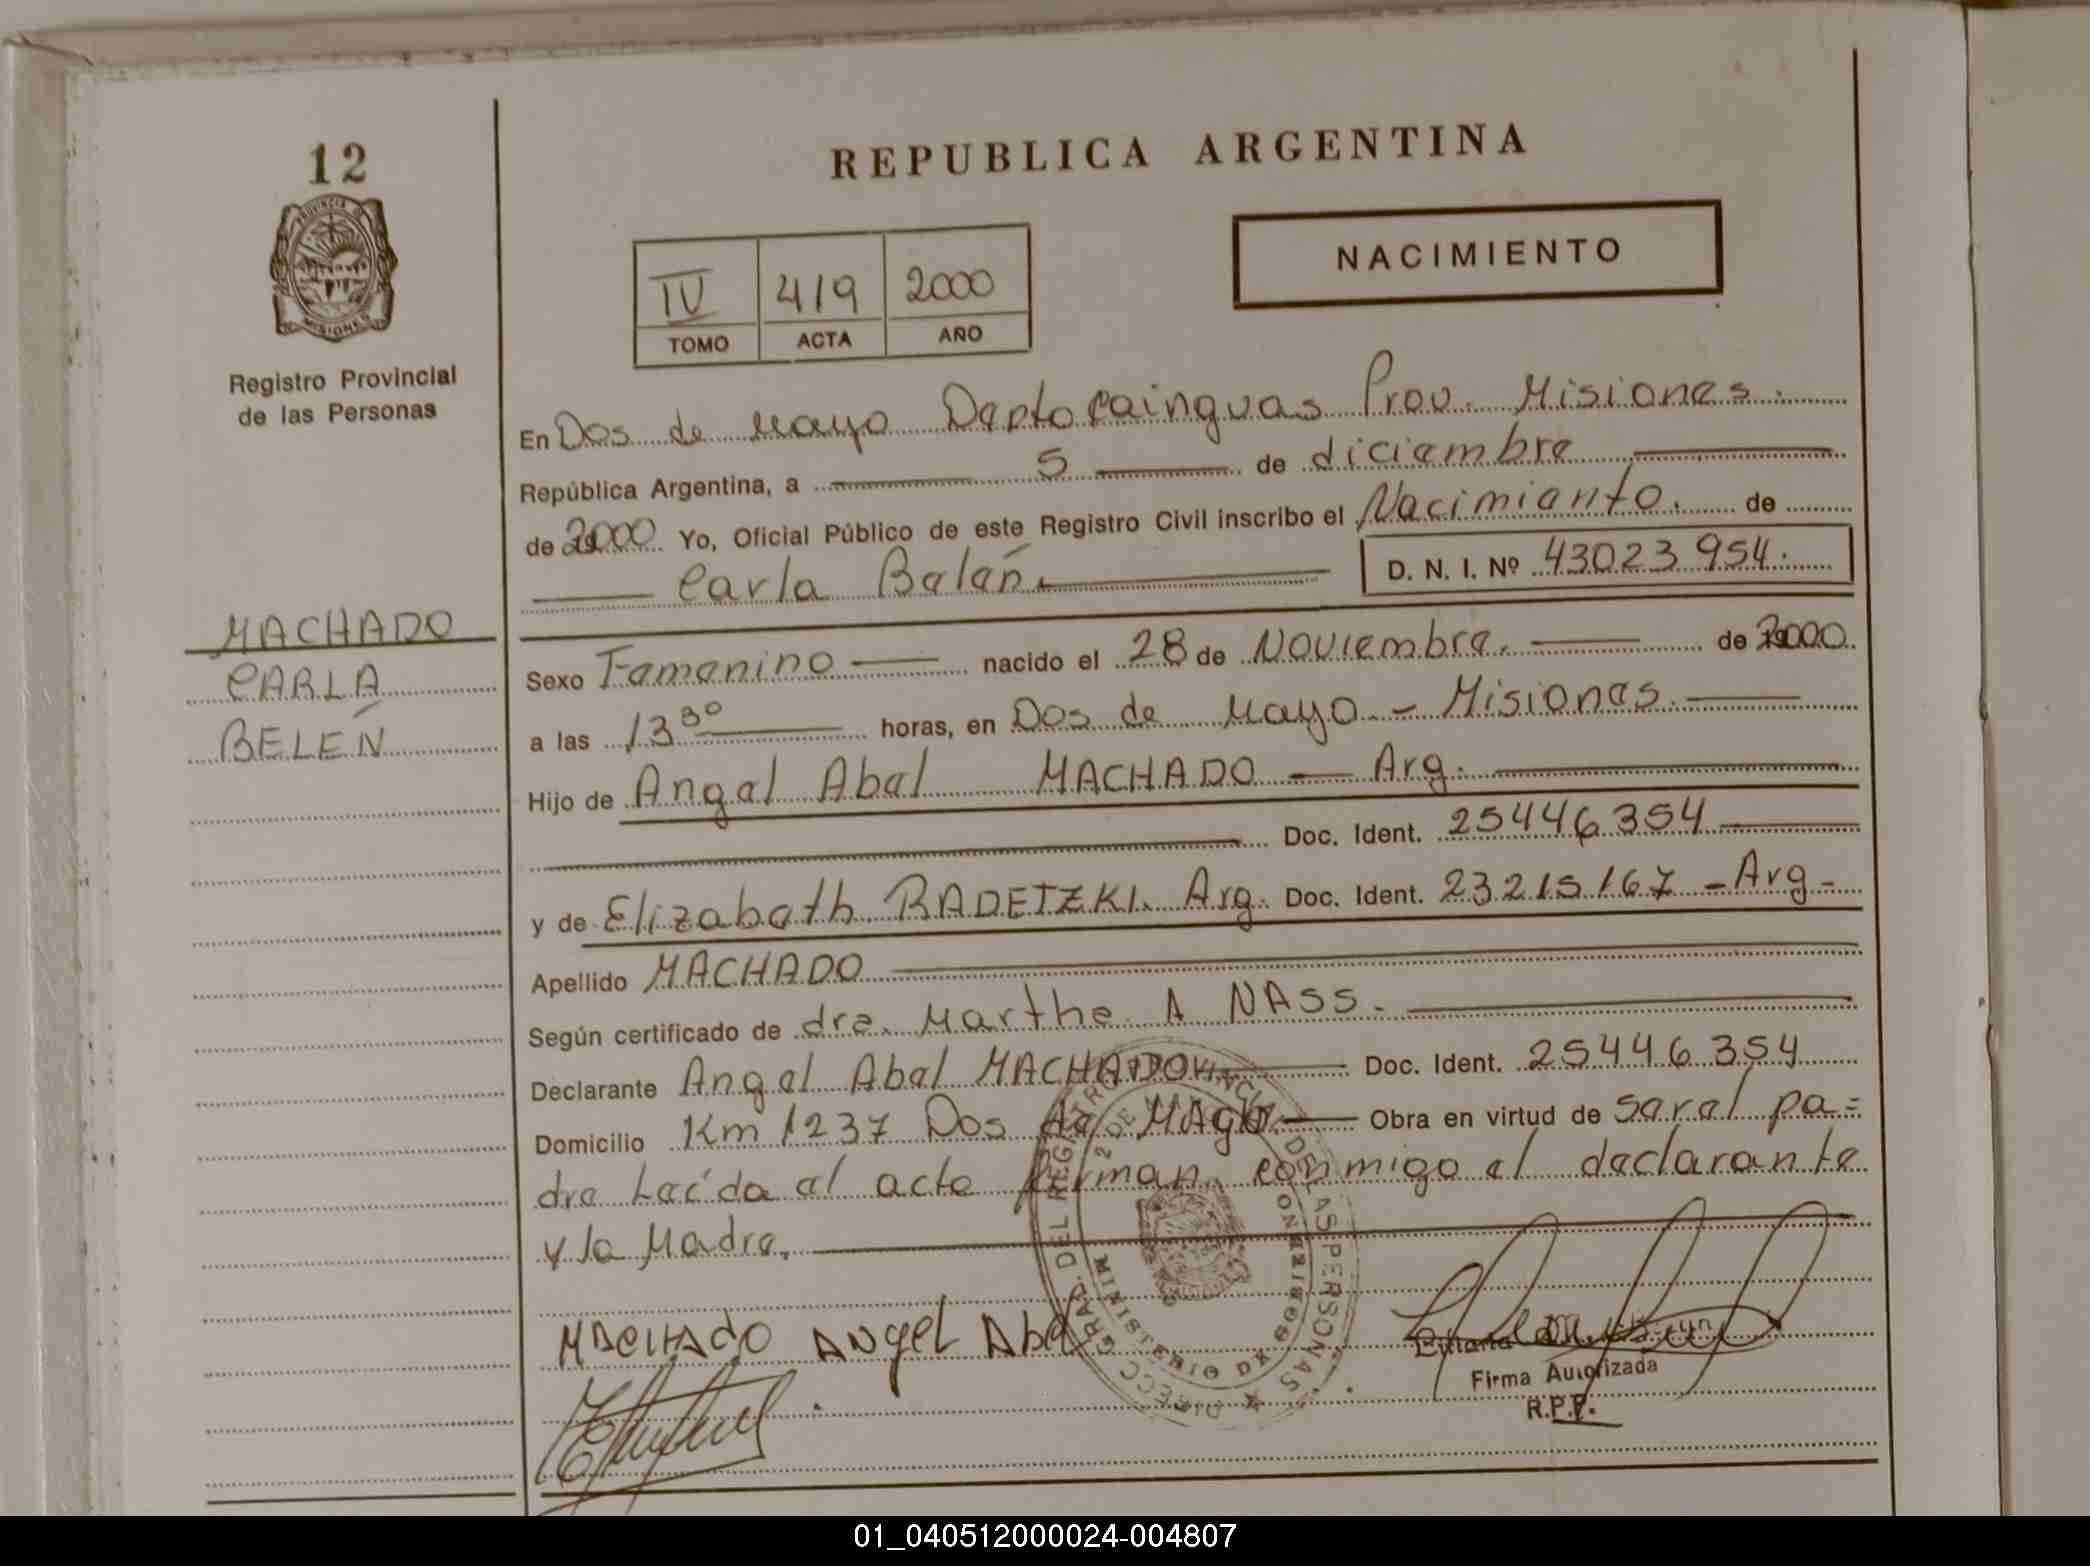 12
REPUBLICA ARGENTINA
NACIMIENTO
IV 419 2000
TOMO ACTA AÑO
PROVINCIA DE MISIONES
Registro Provincial
de las Personas
En Dos de Mayo Depto Cainguas Prov. Misiones.
República Argentina, a 5 de diciembre
de 2000 Yo, Oficial Público de este Registro Civil inscribo el Nacimiento. de
Carla Belén. D. N. I. Nº 43023954.
MACHADO
CARLA
BELÉN
Sexo Femenino nacido el 28 de Noviembre. de 2000.
a las 13 30 horas, en Dos de Mayo - Misiones.
Hijo de Angel Abel MACHADO — Arg.
Doc. Ident. 25446354
y de Elizabeth RADETZKI. Arg. Doc. Ident. 23215167 - Arg -
Apellido MACHADO
Según certificado de dra. Marthe A NASS.
Declarante Angel Abel MACHADO Doc. Ident. 25446354
Domicilio Km 1237 Dos de MAyo Obra en virtud de ser el pa=
dre Leída el acta firman conmigo el declarante
y la Madre.
MACHADO ANgEL AbEl
Firma Autorizada
R.P.P.
DIRECC. GRAL. DEL REGISTRO PROVINCIAL DE LAS PERSONAS
MINISTERIO DE GOBIERNO
2 DE MAYO
01_040512000024-004807